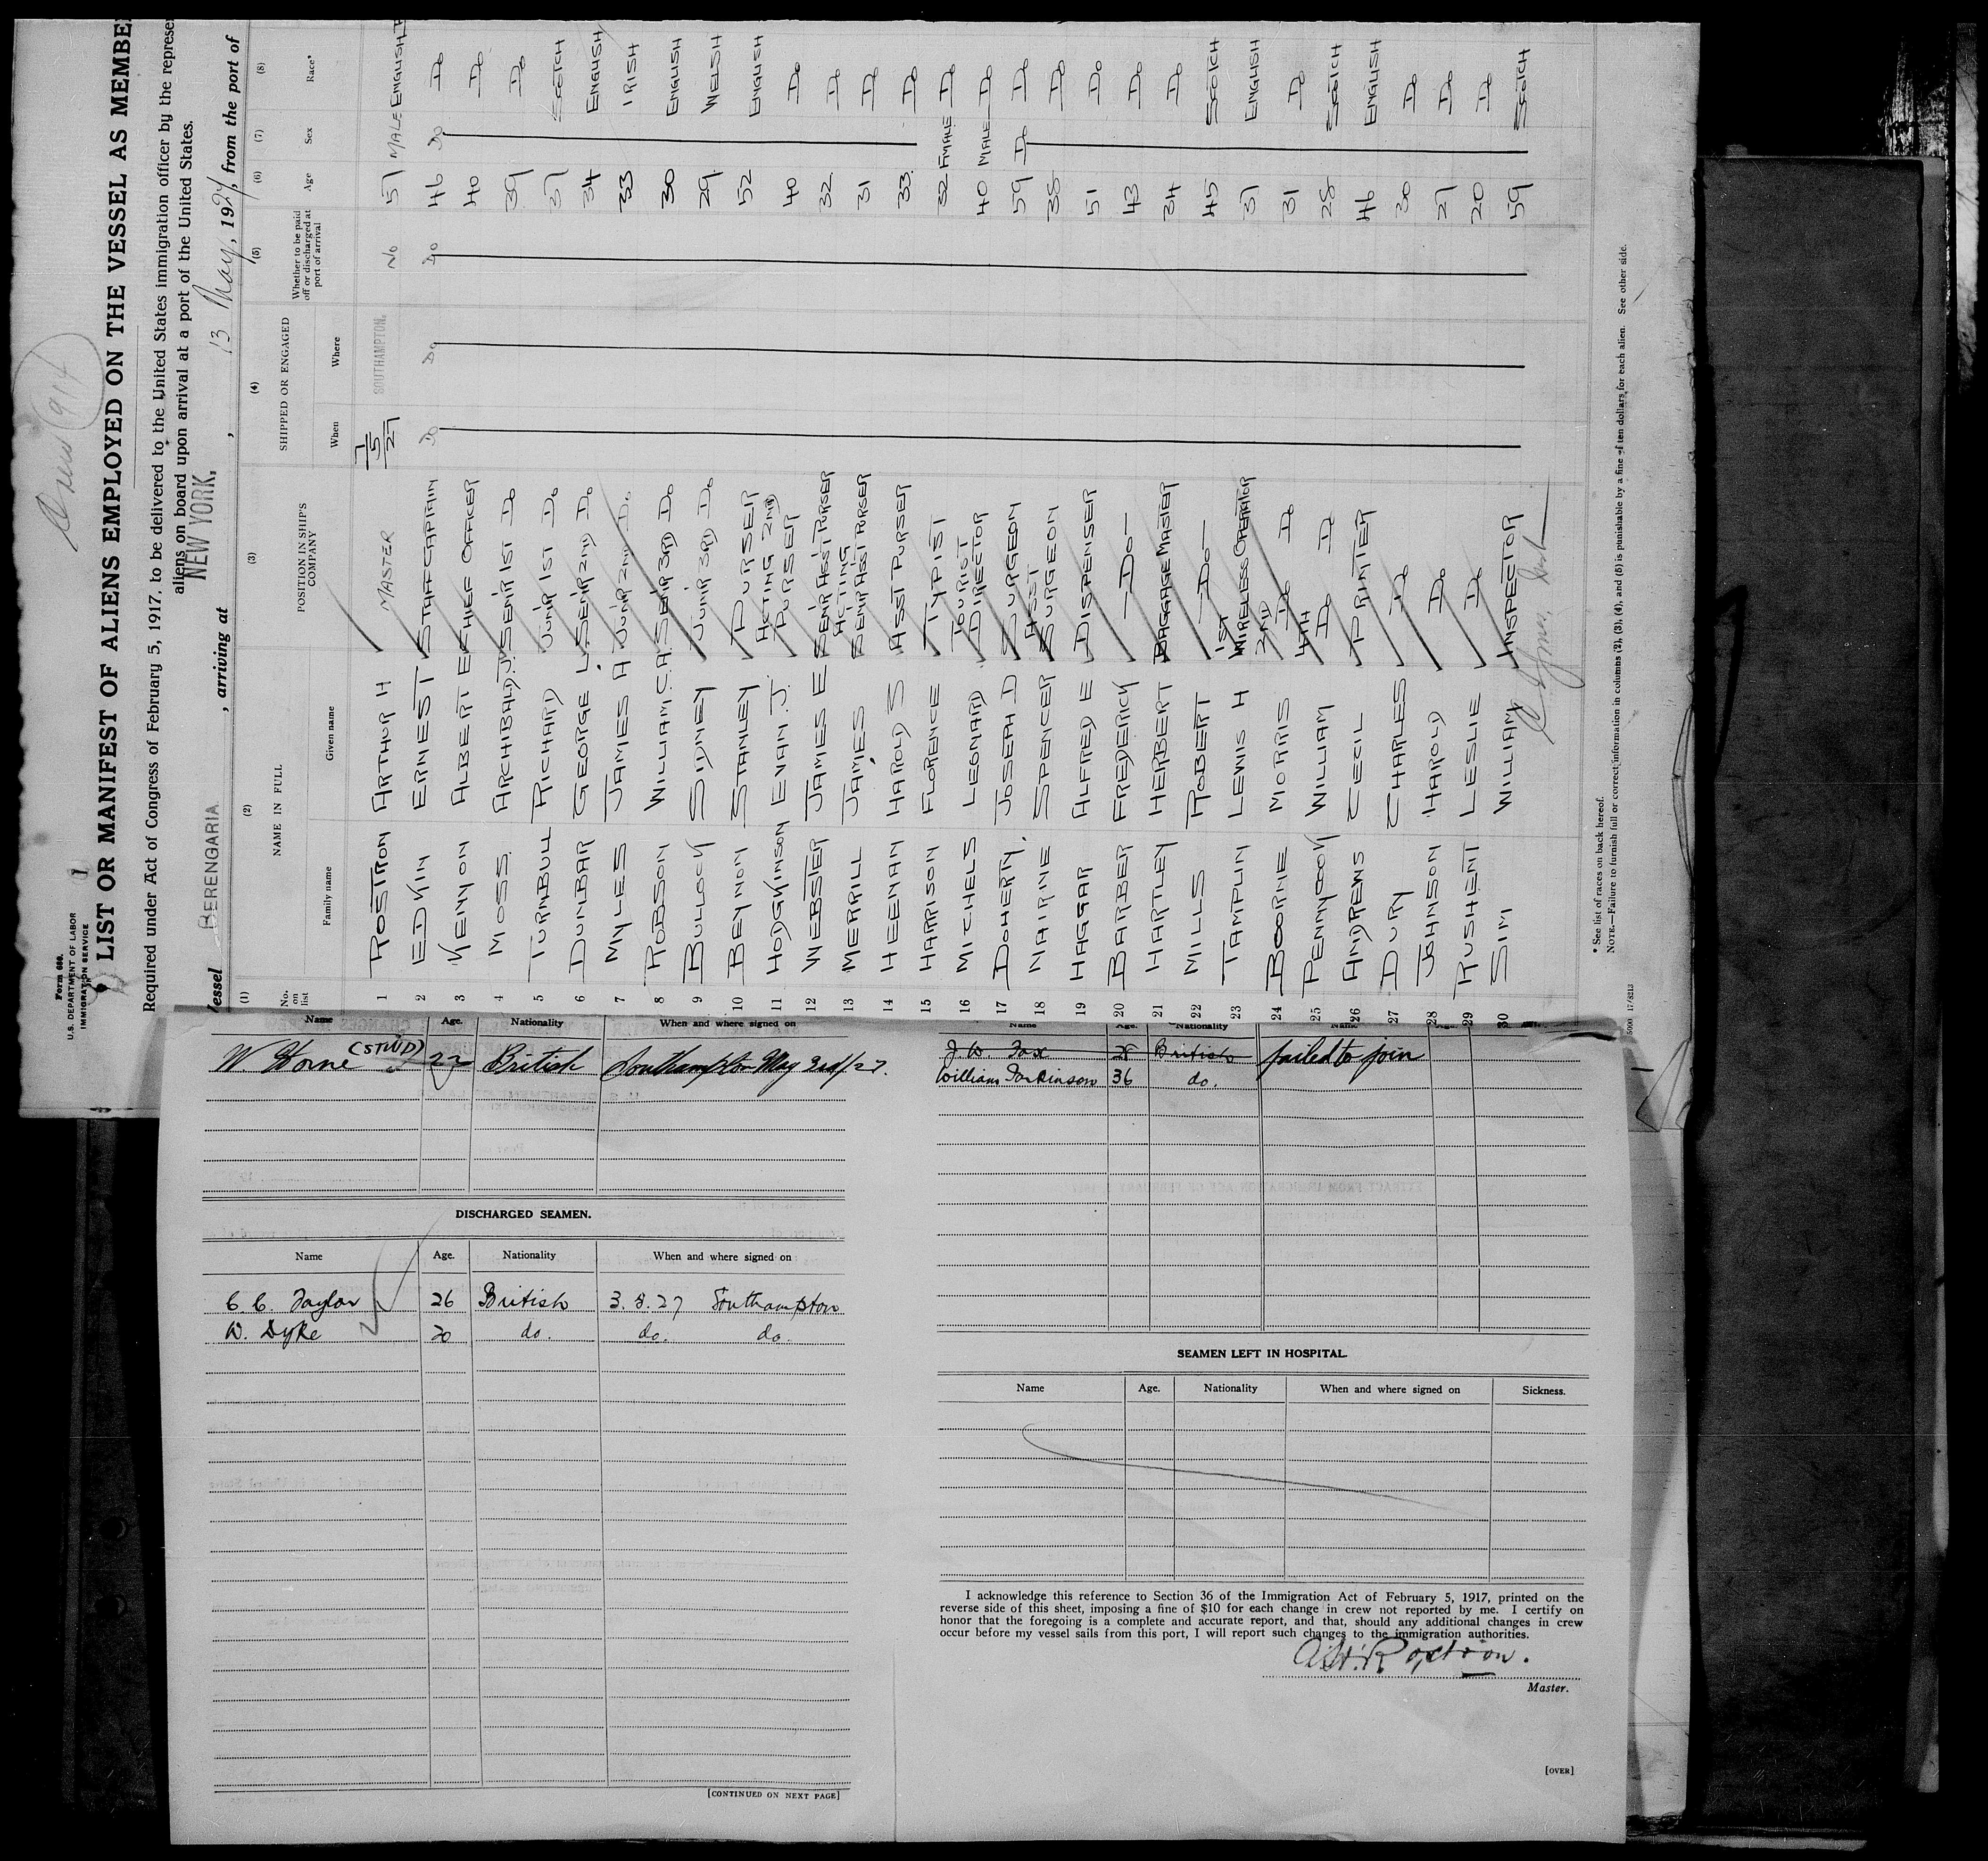 Crew 914
Form 680.
U.S. DEPARTMENT OF LABOR
IMMIGRATION SERVICE
1
LIST OR MANIFEST OF ALIENS EMPLOYED ON THE VESSEL AS MEMBE
Required under Act of Congress of February 5, 1917, to be delivered to the United States immigration officer by the represe
aliens on board upon arrival at a port of the United States.
Vessel BERENGARIA , arriving at NEW YORK. , 13 May, 1927, from the port of
(1) (2) (3) (4) (5) (6) (7) (8)
No. on list NAME IN FULL POSITION IN SHIP'S COMPANY SHIPPED OR ENGAGED Whether to be paid off or discharged at port of arrival Age Sex Race*
Family name Given name When Where
1 ROSTRON ARTHUR H MASTER 7/5/27 SOUTHAMPTON. NO 57 MALE ENGLISH
2 EDKIN ERNEST STAFF CAPTAIN DO DO DO 46 DO DO
3 KENYON ALBERT E CHIEF OFFICER 40 DO
4 MOSS. ARCHIBALD. J. SENR 1ST DO 39 DO
5 TURNBULL RICHARD JUNR 1ST DO 37 SCOTCH
6 DUNBAR GEORGE L. SENR 2ND DO 34 ENGLISH
7 MYLES JAMES A JUNR 2ND DO. 33 IRISH
8 ROBSON WILLIAM C.A. SENR 3RD DO 30 ENGLISH
9 BULLOCK SIDNEY JUNR 3RD DO 29 WELSH
10 BEYNON STANLEY PURSER 52 ENGLISH
11 HODGKINSON EVAN. J. ACTING 2ND PURSER 40 DO
12 WEBSTER JAMES E SENR ASST PURSER 32 DO
13 MERRILL JAMES ACTING SENR ASST PURSER 31 DO
14 HEENAN HAROLD S ASST PURSER 33 DO
15 HARRISON FLORENCE TYPIST 32 FMALE DO
16 MICHELS LEONARD TOURIST DIRECTOR 40 MALE DO
17 DOHERTY. JOSEPH D SURGEON 59 DO DO
18 NAIRINE SPENCER ASST SURGEON 38 DO
19 HAGGAR ALFRED E DISPENSER 51 DO
20 BARBER FREDERICK — DO — 43 DO
21 HARTLEY HERBERT BAGGAGE MASTER 34 DO
22 MILLS ROBERT — DO — 45 SCOTCH
23 TAMPLIN LEWIS H 1ST WIRELESS OPERATOR 37 ENGLISH
24 BOORNE MORRIS 2ND DO DO 31 DO
25 PENNYCOOK WILLIAM 4TH DO DO 28 SCOTCH
26 ANDREWS CECIL PRINTER 46 ENGLISH
27 DURY CHARLES DO 30 DO
28 JOHNSON HAROLD DO 27 DO
29 RUSHENT LESLIE DO 20 DO
30 SIM WILLIAM INSPECTOR 59 SCOTCH
* See list of races on back hereof.
NOTE.—Failure to furnish full or correct information in columns (2), (3), (4), and (5) is punishable by a fine of ten dollars for each alien. See other side.
Name Age. Nationality When and where signed on
W Horne (STWD) 22 British Southampton May 3rd/27.
DISCHARGED SEAMEN.
Name Age. Nationality When and where signed on
C. C. Taylor 26 British 3.5.27 Southampton
W. Dyke 20 do. do. do.
[CONTINUED ON NEXT PAGE]
Name Age. Nationality
J. W. Fox 28 British failed to join
William Parkinson 36 do.
SEAMEN LEFT IN HOSPITAL.
Name Age. Nationality When and where signed on Sickness.
I acknowledge this reference to Section 36 of the Immigration Act of February 5, 1917, printed on the
reverse side of this sheet, imposing a fine of $10 for each change in crew not reported by me. I certify on
honor that the foregoing is a complete and accurate report, and that, should any additional changes in crew
occur before my vessel sails from this port, I will report such changes to the immigration authorities.
A.H. Rostron.
Master.
[OVER]